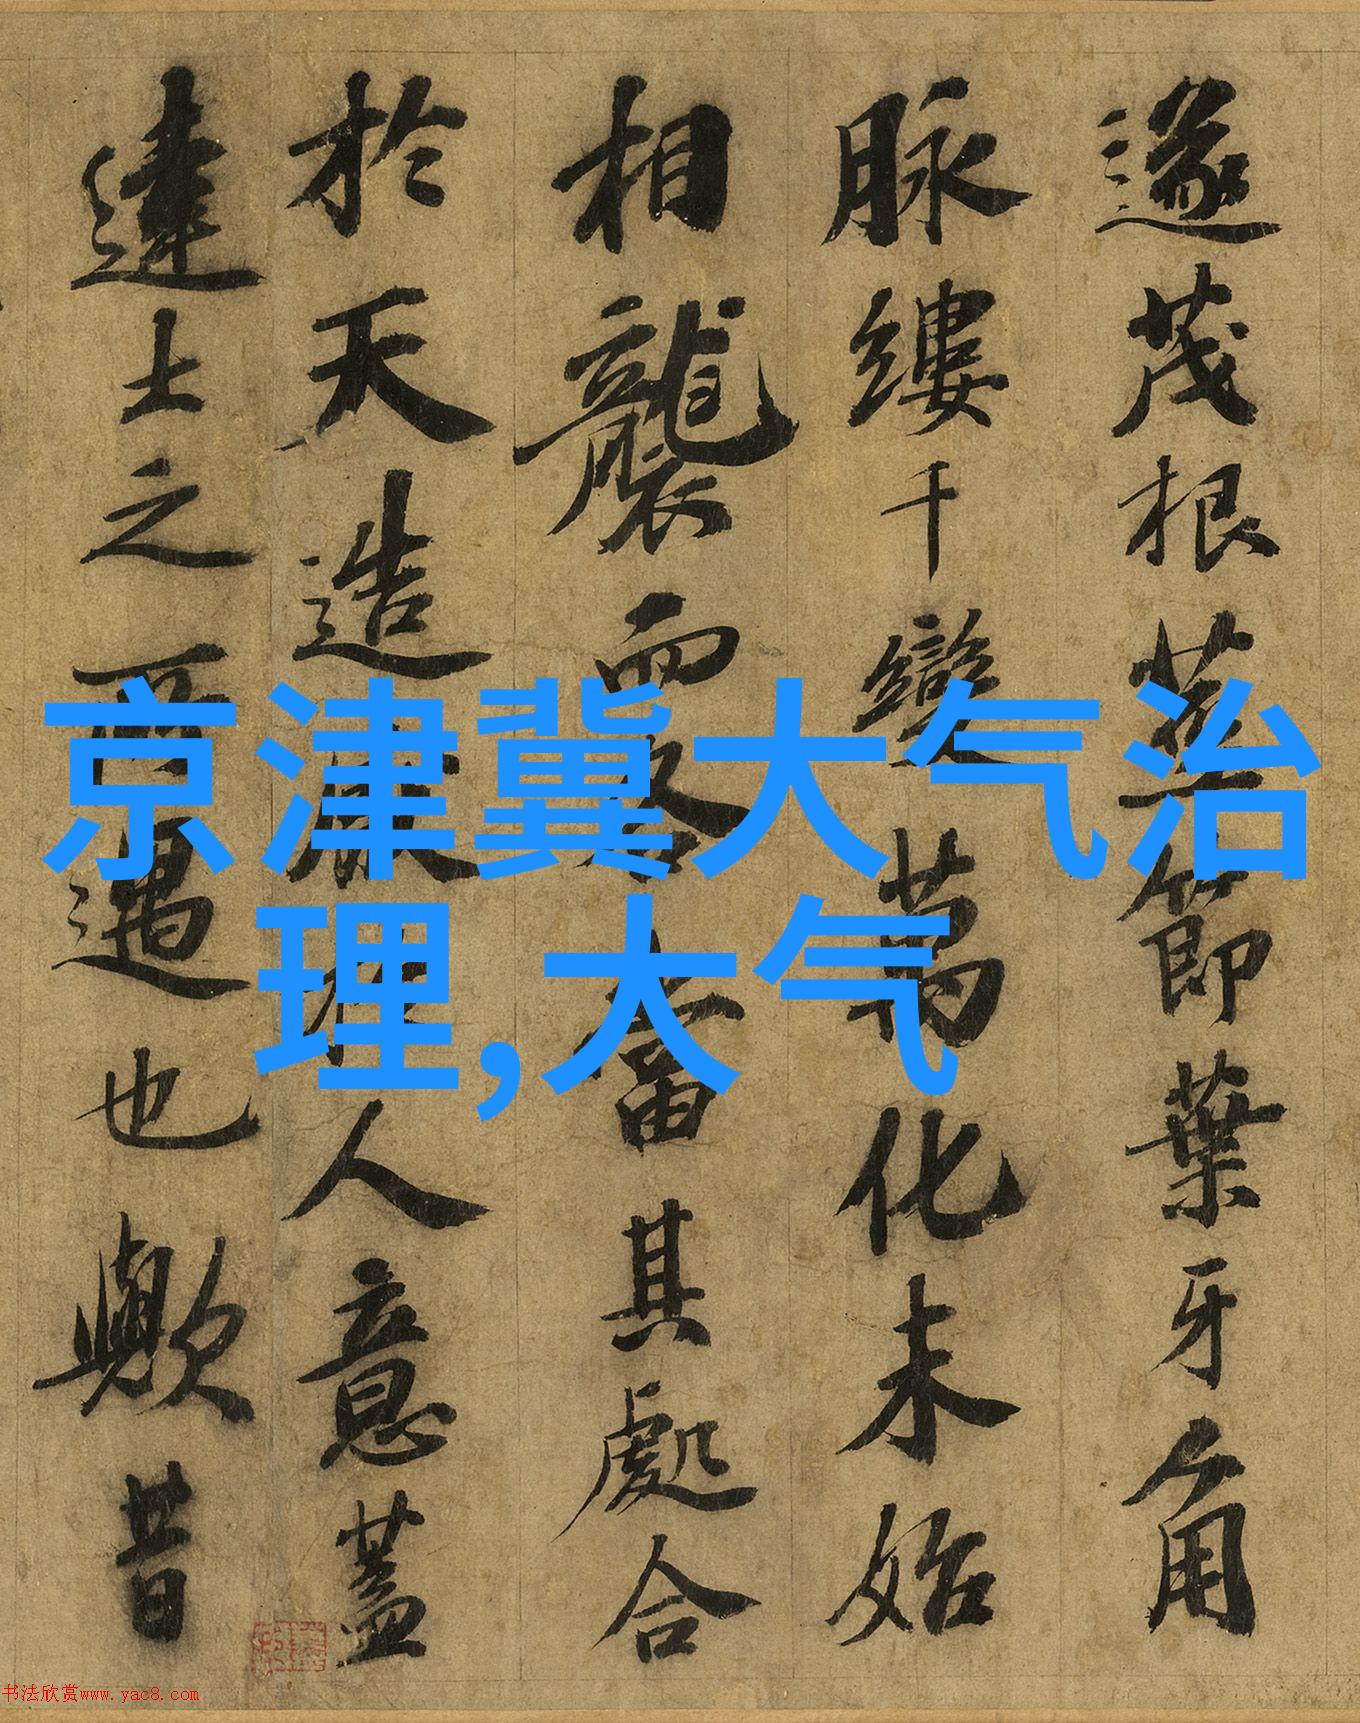 遂茂根莖節葉牙角
脉縷千變萬化未始
相襲而各當其處合
於天造厭於人意蓋
達士之所遇也歟昔
京津冀大气治
理,大气
书法欣赏www.yac8.com